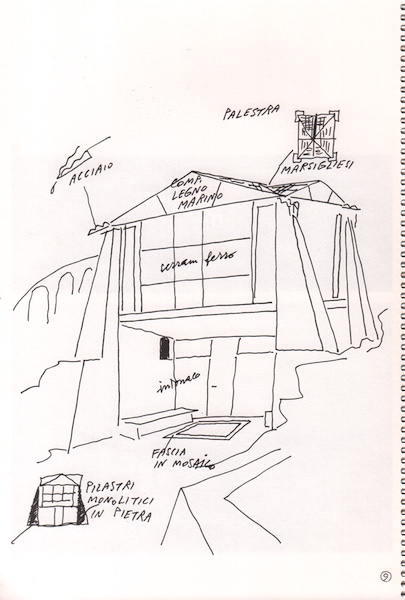 PALESTRA
MARSIGLIESI
ACCIAIO
COMP.
LEGNO
MARINO
serram ferro
intonaco
FASCIA
IN MOSAICO
PILASTRI
MONOLITICI
IN PIETRA
9